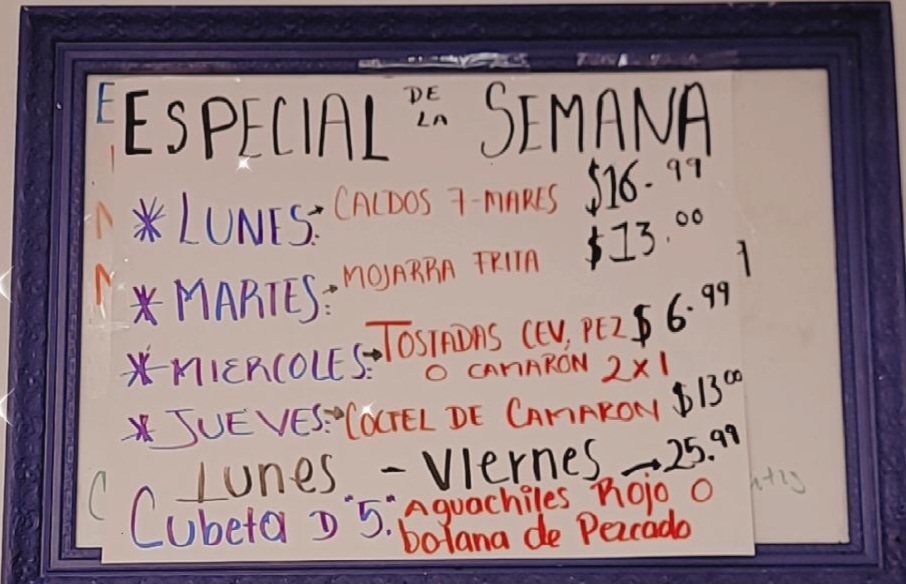 ESPECIAL DE LA SEMANA
* LUNES: CALDOS 7-MARES $16.99
* MARTES: MOJARRA FRITA $13.00
* MIERCOLES: TOSTADAS CEV, PEZ $6.99
O CAMARON 2X1
* JUEVES: COCTEL DE CAMARON $13.00
Lunes - Viernes → 25.99
Cubeta D "5." Aguachiles Rojo O
botana de Pezcado